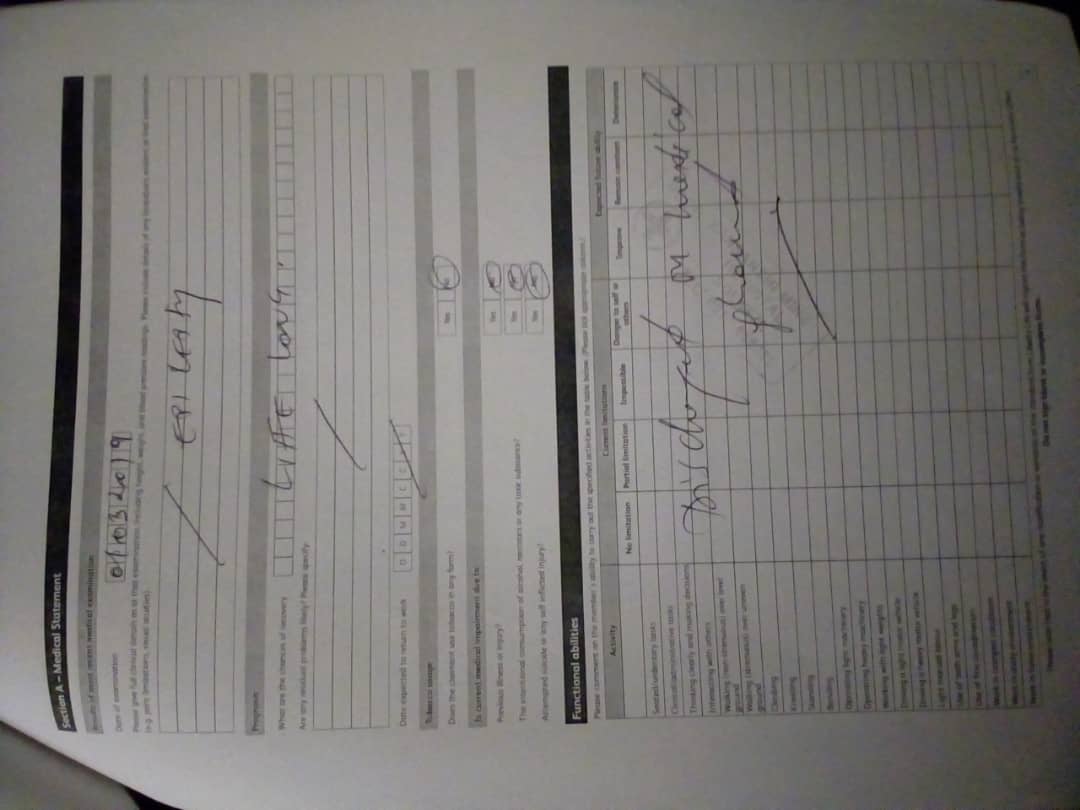 Section A – Medical Statement
Results of most recent medical examination
Date of examination 01032019
Please give full clinical details as at that examination including height, weight, and blood pressure readings. Please include details of any
(e.g. joint limitations, visual acuities).
EPILEPSY
Prognosis
What are the chances of recovery LIFE LONG
Are any residual problems likely? Please specify.
Date expected to return to work D D M M C C
Tobacco usage
Does the claimant use tobacco in any form? Yes
Is current medical impairment due to:
Previous illness or injury? Yes
The intentional consumption of alcohol, narcotics or any toxic substance? Yes
Attempted suicide or any self inflicted injury? Yes
Functional abilities
Please comment on the member's ability to carry out the specified activities in the table below. (Please tick appropriate column.)
Activity Current limitations Expected future ability
No limitation Partial limitation Impossible Danger to self or others Improve Remain constant Deteriorate
Seated/sedentary tasks
Clerical/administrative tasks
Thinking clearly and making decisions
Interacting with others
Walking (non-strenuous) over level ground
Walking (strenuous) over uneven ground
on medical
ground
Climbing
Kneeling
Standing
Bending
Operating light machinery
Operating heavy machinery
Working with light weights
Driving a light motor vehicle
Driving a heavy motor vehicle
Light manual labour
Use of both arms and legs
Do not sign blank or incomplete forms.